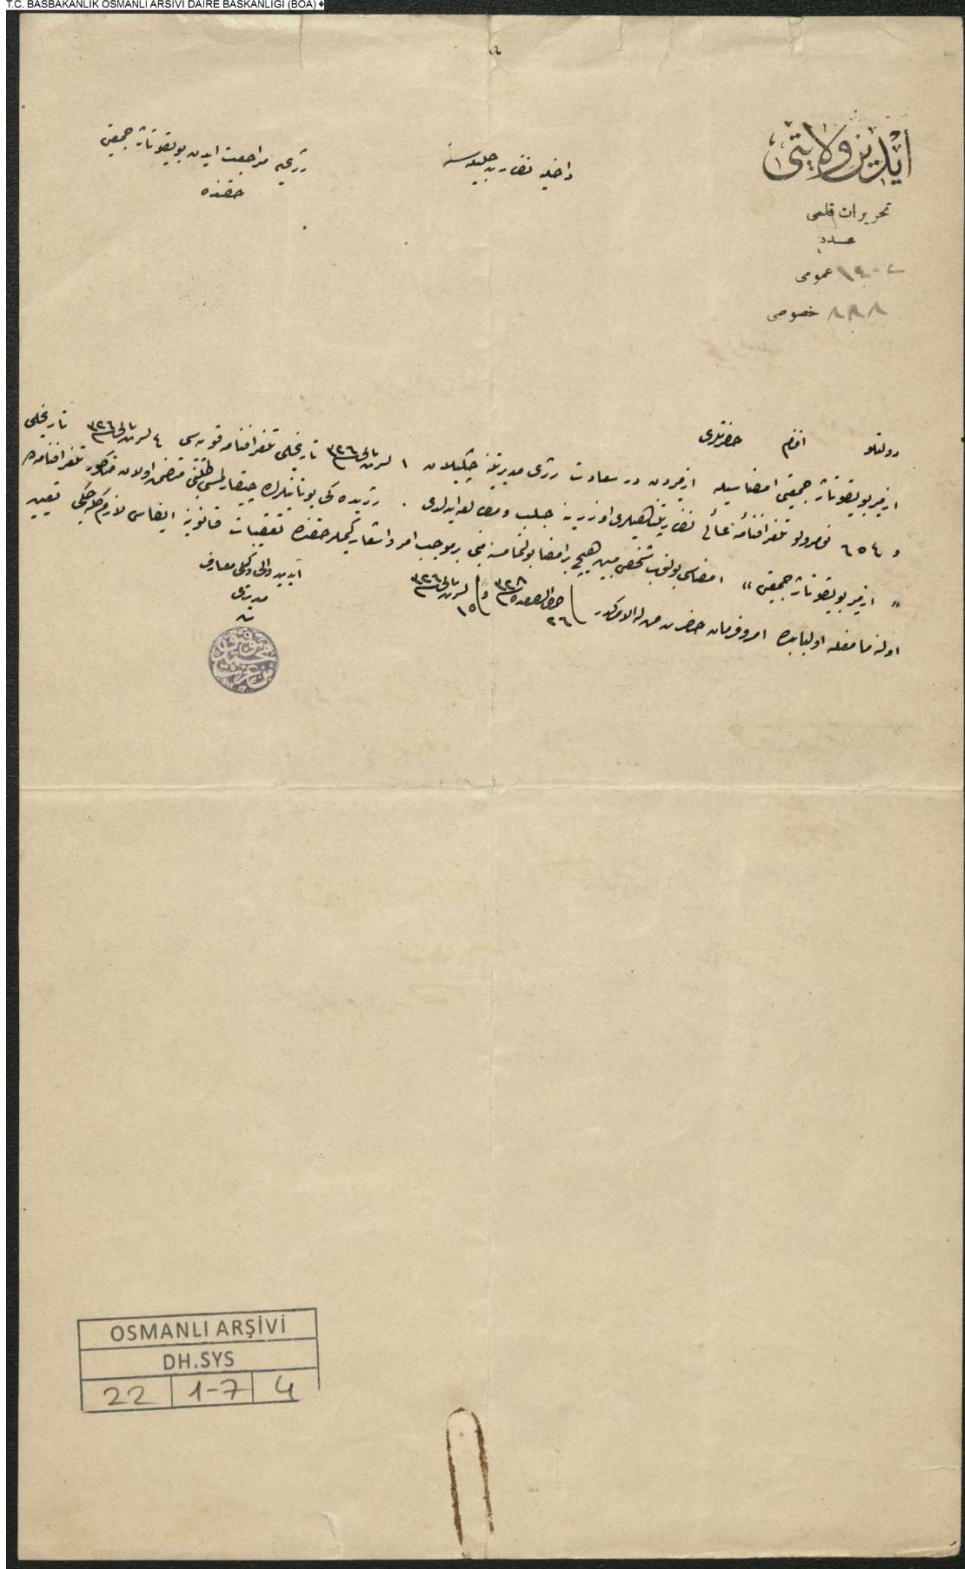 T.C. BASBAKANLIK OSMANLI ARSIVI DAIRE BASKANLIGI (BOA)
آیدین ولایتی
تحریرات قلمی
عدد
عمومی
خصوصی ٨٩٨
داخلیه نظارت جلیله سنه
رژی‌یه مراجعت ایدن بویقوتاژ جمعیتی
حقنده
دولتلو افندم حضرتلری
ازمیر بویقوتاژ جمعیتی امضاسیله ازمیردن در سعادت رژی مدیریتنه چکیلان ١ تشرین ثانی ٣٢٦ تاریخلی تلغرافنامه قوپه سی ٤ تشرین ثانی ٣٢٦ تاریخلی
و ٦٥٤ نومرولو تلغرافنامه عالئ نظارتپناهیلری اوزرینه جلب و مطالعه ایدلدی . رژیده کی یونانیلرك چیقارلمسی طلبنی متضمن اولان مذکور تلغرافنامه ده
« ازمیر بویقوتاژ جمعیتی » امضاسی بولنوب شخصی مبین هیچ بر امضا بولنمامسنه مبنی بر موجب امر و اشعار کیملر حقنده تعقیبات قانونیه ایفاسی لازم کله جکی تعیین
اولنه مامغله اولبابده امر و فرمان حضرت من له الامرکدر
٣٢٨ و ١٥ تشرین ثانی ٣٢٦
آیدین والی وکیلی معارف
مدیری
OSMANLI ARŞİVİ
DH.SYS
22 1-7 4